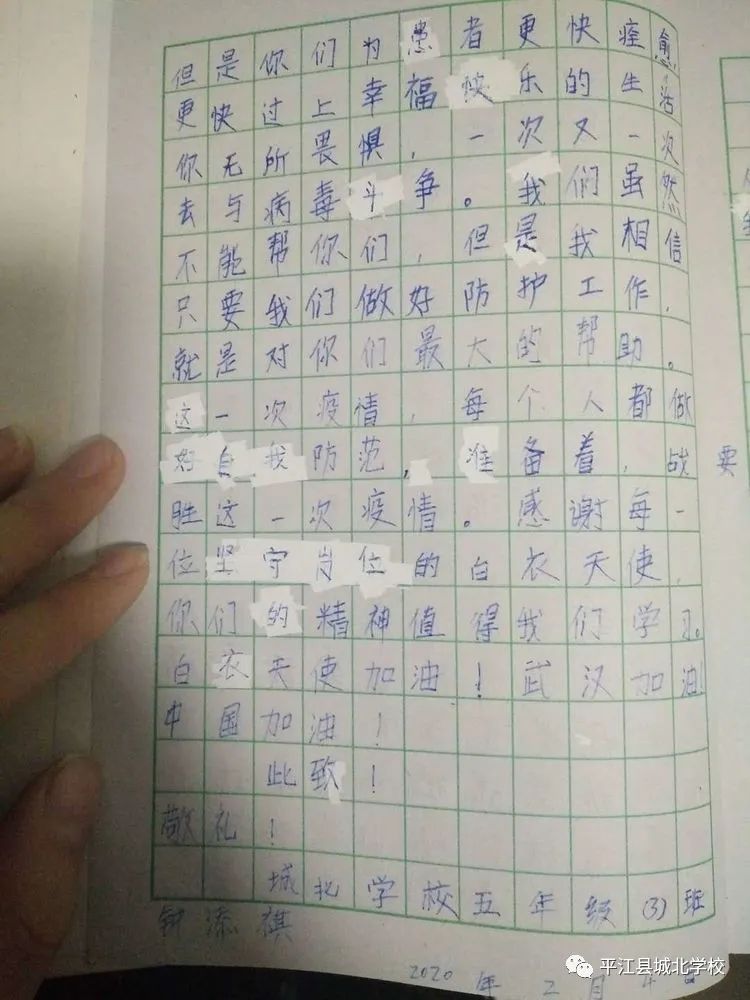 但是你们为患者更快痊愈
更快过上幸福快乐的生活
你无所畏惧，一次又一次
去与病毒斗争。我们虽然
不能帮你们，但是我相信
只要我们做好防护工作，
就是对你们最大的帮助。
这一次疫情，每个人都做
好自我防范，准备着，战
胜这一次疫情。感谢每一
位坚守岗位的白衣天使，
你们的精神值得我们学习。
白衣天使加油！武汉加油！
中国加油！
此致！
敬礼！
城北学校五年级(3)班
钟添祺
2020年2月4日
要
平江县城北学校